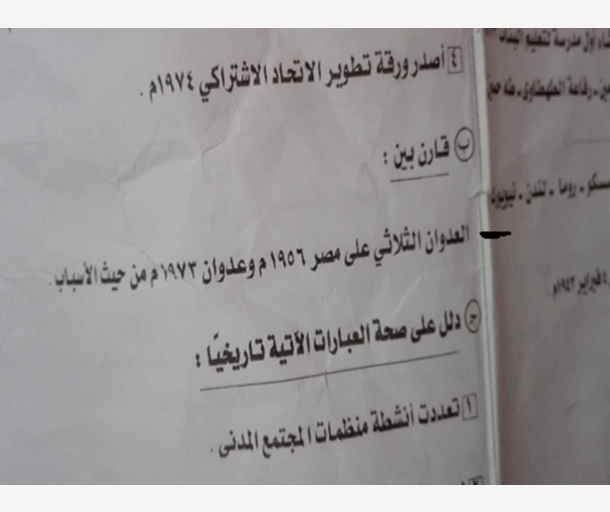 ٤ أصدر ورقة تطوير الاتحاد الاشتراكي ١٩٧٤م .
ب قارن بين :
العدوان الثلاثي على مصر ١٩٥٦ م وعدوان ١٩٧٣ م من حيث الأسباب .
ج دلل على صحة العبارات الآتية تاريخيًا :
١ تعددت أنشطة منظمات المجتمع المدنى .
أول مدرسة لتعليم البنات
رفاعة الطهطاوى - طه
روما - لندن - نيويورك
٤ فبراير ١٩٤٢م .